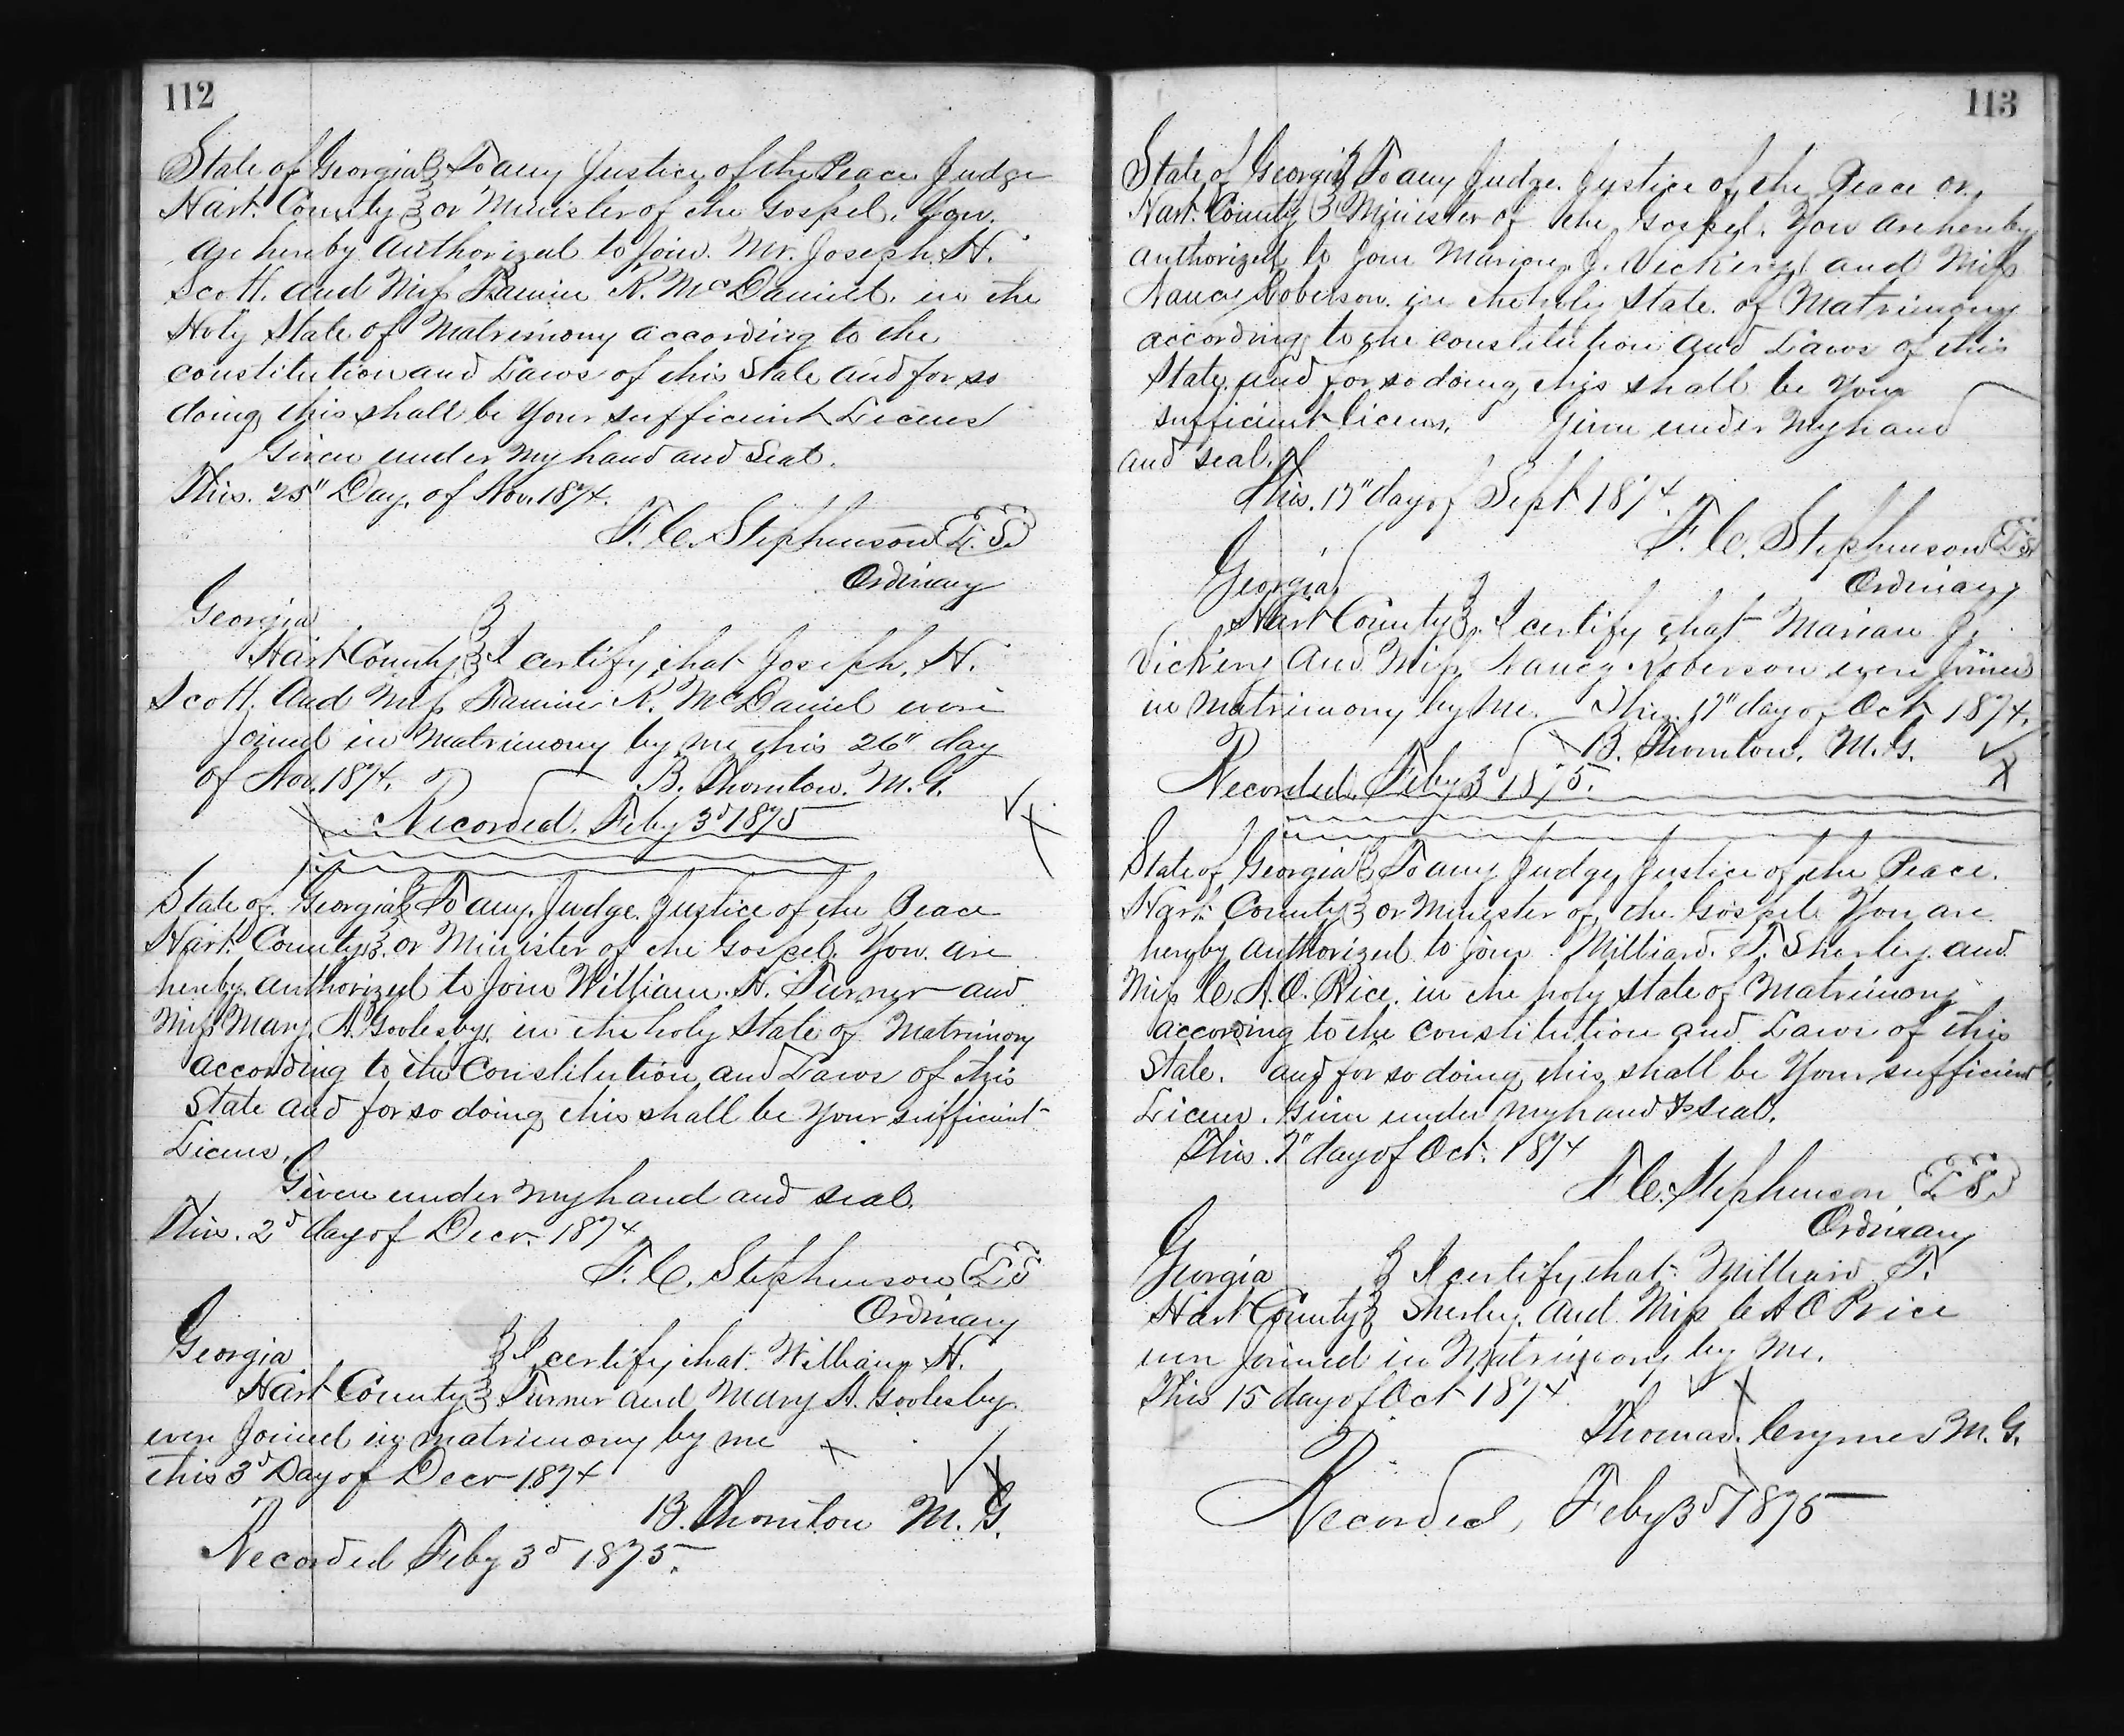 112
State of Georgia } To any Justice of the Peace Judge
Hart County } or Minister of the Gospel. You
are hereby authorized to join Mr. Joseph H.
Scott. and Miss Fannie R. McDaniel. in the
Holy State of Matrimony according to the
constitution and Laws of this State and for so
doing this shall be Your sufficient Licens
Given under my hand and Seal.
This. 25" Day. of Nov. 1874.
F. C. Stephenson L.S.
Ordinary
Georgia }
Hart County } I certify that Joseph. H.
Scott. and Miss Fannie R. McDaniel were
Joined in Matrimony by me this 26" day
of Nov. 1874.
B. Thornton. M.G.
Recorded. Feby 3d 1875
State of Georgia } To any. Judge. Justice of the Peace
Hart County } or Minister of the Gospel. You are
hereby authorized to Join William. H. Turner and
Miss Mary A. Goolesby. in the holy State of Matrimony
according to the Constitution and Laws of this
State and for so doing this shall be Your sufficient
Licens.
Given under my hand and seal.
This. 2d day of Decr. 1874
F. C. Stephenson L S
Ordinary
Georgia } I certify that. William H.
Hart County } Turner and Mary A. Goolesby.
were Joined in matrimony by me
this 3d Day of Decr 1874
B. Thornton M. G.
Recorded Feby 3d 1875.
113
State of Georgia } To any Judge. Justice of the Peace or
Hart County } Minister of the Gospel. You are hereby
authorized to join Marion J. Vickery and Miss
Nancy Roberson. in the holy State of Matrimony
according to the constitution and Laws of this
State and for so doing this shall be Your
sufficient licens. Given under my hand
and seal.
This. 17" day of Sept 1874.
F. C. Stephenson L S
Ordinary
Georgia }
Hart County } I certify that Marian J.
Vickery and Miss Nancy Roberson were Joined
in matrimony by me. This 17" day of Oct 1874.
B. Thornton. M.G.
Recorded. Feby 3d 1875.
State of Georgia } To any Judge Justice of the Peace.
Hart County } or Minister of the Gospel. You are
hereby authorized to join Milliard. F. Sherley and
Miss C. A. O. Price. in the holy State of Matrimony
according to the constitution and Laws of this
State. and for so doing this shall be Your sufficient
Licens. Given under my hand & seal.
This. 7" day of Oct. 1874
F C. Stephenson L. S.
Ordinary
Georgia } I certify that. Milliard F.
Hart County } Sherley. and Miss C A O Price
were Joined in Matrimony by me.
This 15 day of Oct 1874.
Thomas. Crymes M. G.
Recorded, Feby 3d 1875